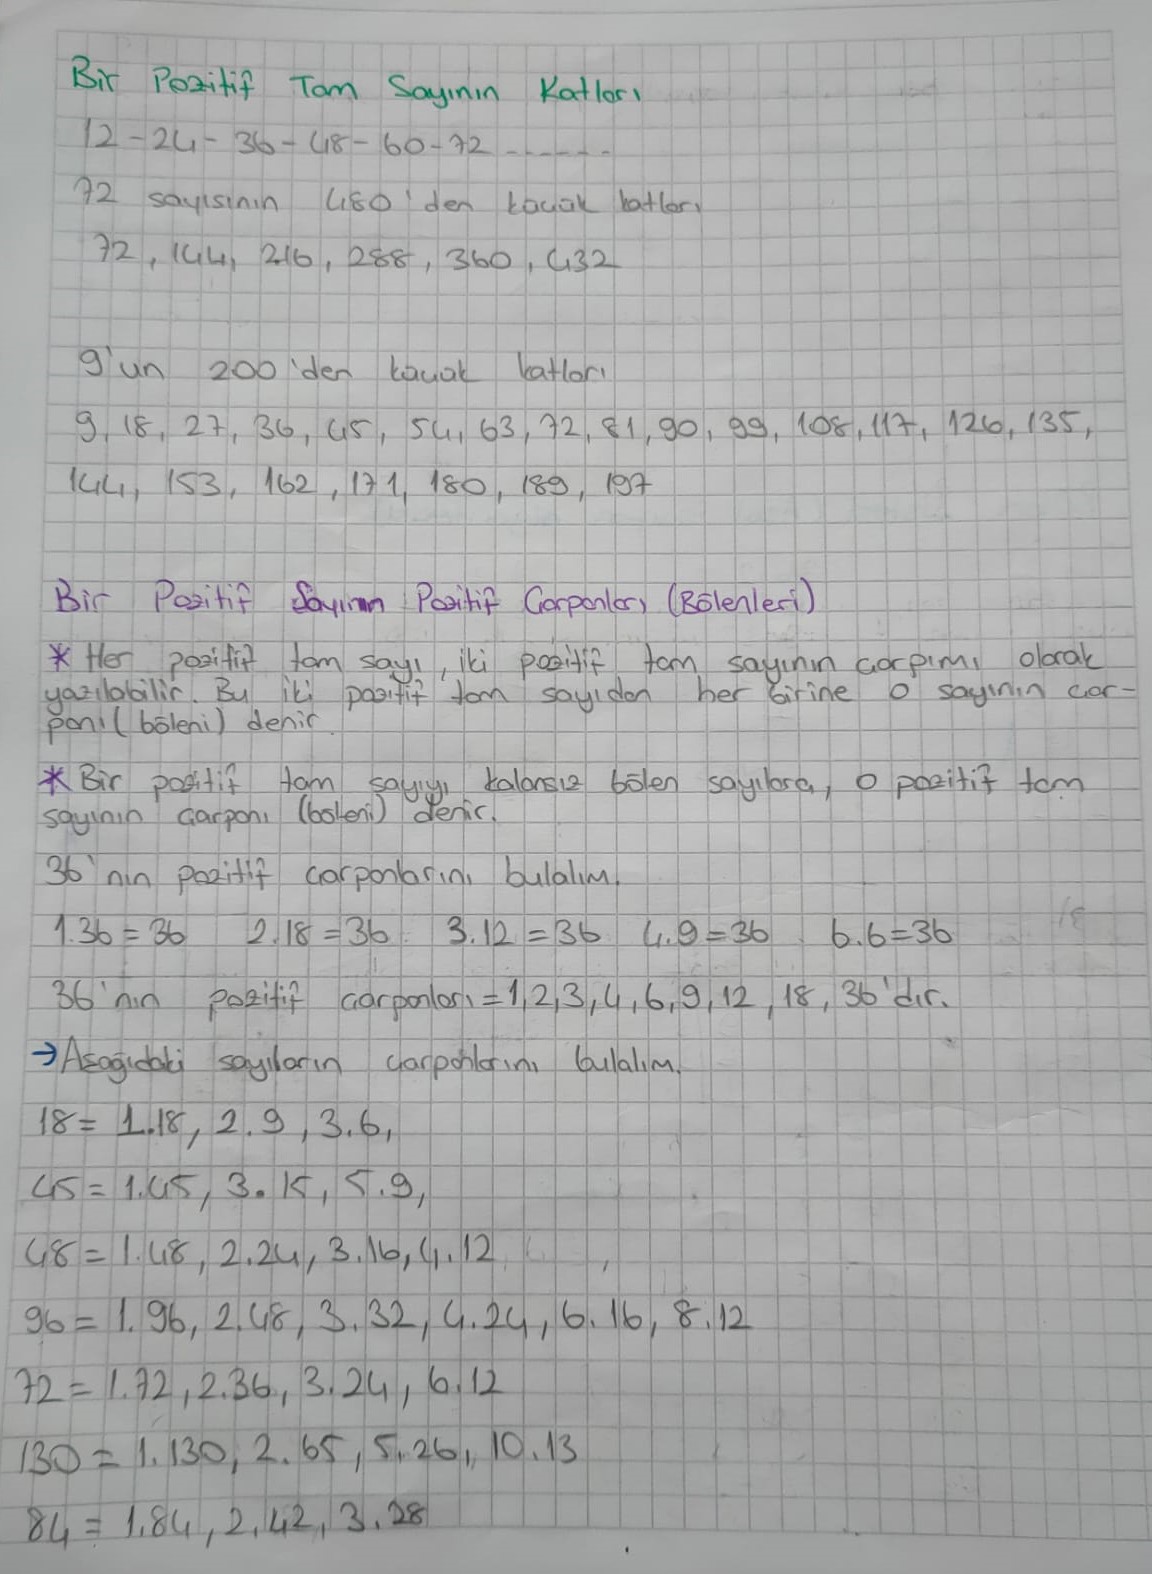 Bir Pozitif Tam Sayının Katları
12-24-36-48-60-72-------
72 sayısının 480'den küçük katları
72, 144, 216, 288, 360, 432
9'un 200'den küçük katları
9, 18, 27, 36, 45, 54, 63, 72, 81, 90, 99, 108, 117, 126, 135,
144, 153, 162, 171, 180, 189, 197
Bir Pozitif Sayının Pozitif Çarpanları (Bölenleri)
* Her pozitif tam sayı, iki pozitif tam sayının çarpımı olarak
yazılabilir. Bu iki pozitif tam sayıdan her birine o sayının çar-
panı (böleni) denir.
* Bir pozitif tam sayıyı kalansız bölen sayılara, o pozitif tam
sayının çarpanı (böleni) denir.
36'nın pozitif çarpanlarını bulalım.
1.36=36 2.18=36 3.12=36 4.9=36 6.6=36
36'nın pozitif çarpanları=1,2,3,4,6,9,12,18,36'dır.
→Aşağıdaki sayıların çarpanlarını bulalım.
18= 1.18, 2.9, 3.6,
45=1.45, 3.15, 5.9,
48=1.48, 2.24, 3.16, 4.12 ,
96=1.96, 2.48, 3.32, 4.24, 6.16, 8.12
72=1.72, 2.36, 3.24, 6.12
130=1.130, 2.65, 5.26, 10.13
84=1.84, 2.42, 3.28